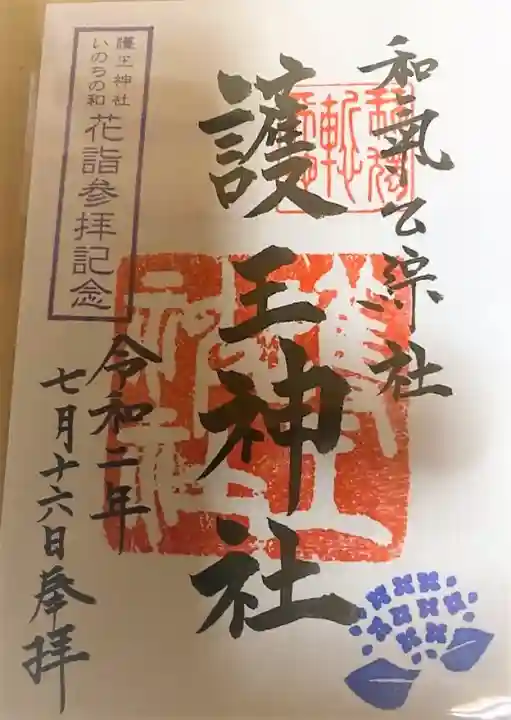 和氣公綜社
護王神社
令和二年
七月十六日奉拝
護王神社
いのちの和
花詣参拝記念
護王神社